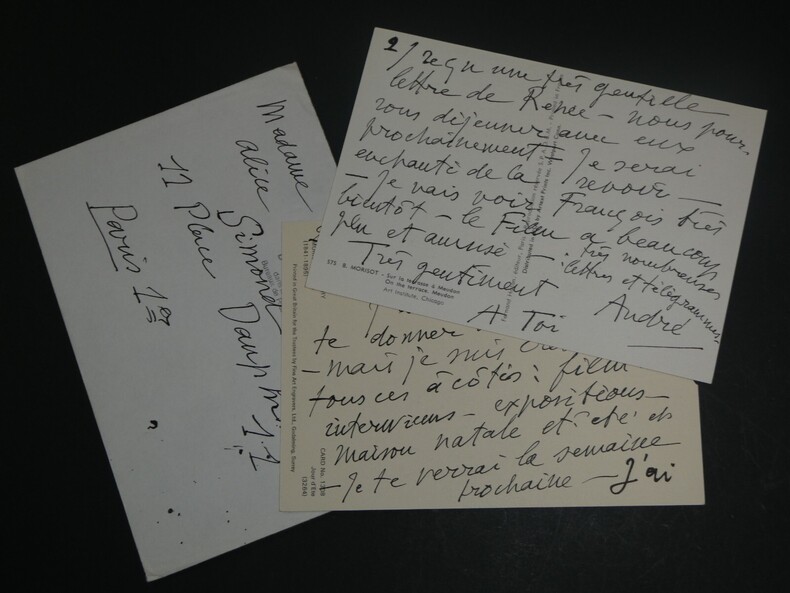 Madame
Alice
Simond
12 Place Dauphine
Paris 1er
2
J'
reçu une très gentille
lettre de Renée - nous pour-
rons déjeuner avec eux
prochainement - Je serai
enchanté de la revoir -
- Je vais voir François très
bientôt - le Film a beaucoup
plu et amusé - très nombreuses
lettres et télégrammes.
Très gentiment
A Toi
André
575 B. MORISOT - Sur la terrasse à Meudon
On the terrace, Meudon
Art Institute, Chicago
te donner
- mais je suis
film
tous ces à côtés:
interviews - expositions -
maison natale et
- Je te verrai la semaine
prochaine - J'ai
(1841-1895)
Printed in Great Britain for the Trustees by Fine Art Engravers, Ltd., Godalming, Surrey
CARD No.
Jour d'Eté
(3264)